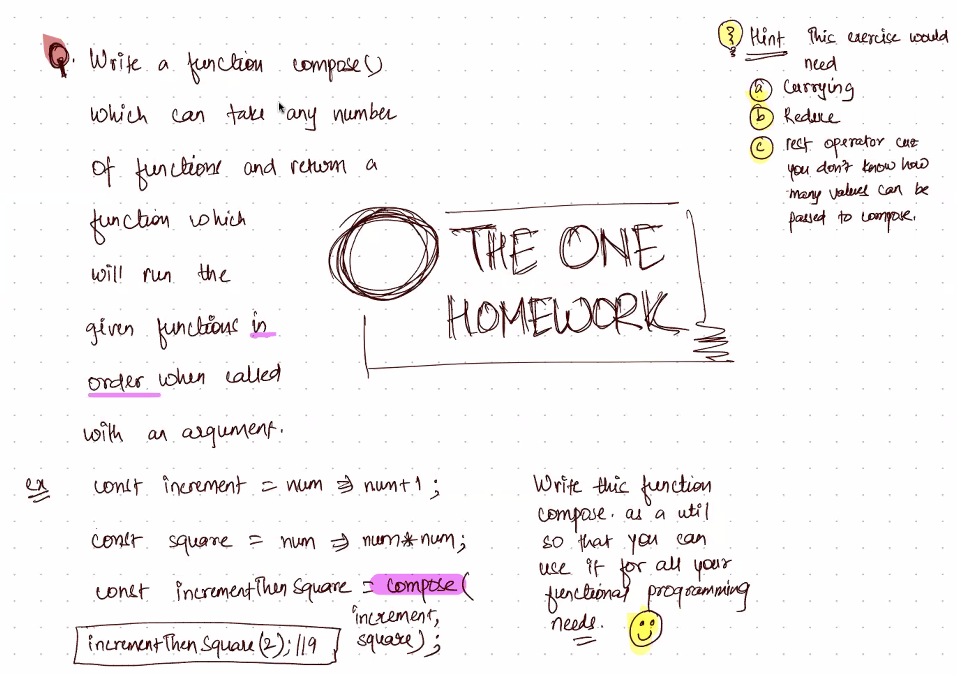 Q. Write a function compose()
which can take any number
of functions and return a
function which
will run the
given functions in
order when called
with an argument.
Hint This exercise would
need
a Currying
b Reduce
c rest operator cuz
you don't know how
many values can be
passed to compose.
THE ONE
HOMEWORK
ex const increment = num => num+1;
const square = num => num*num;
const incrementThenSquare = compose(
increment,
square);
incrementThenSquare(2); //9
Write this function
compose. as a util
so that you can
use it for all your
functional programming
needs.